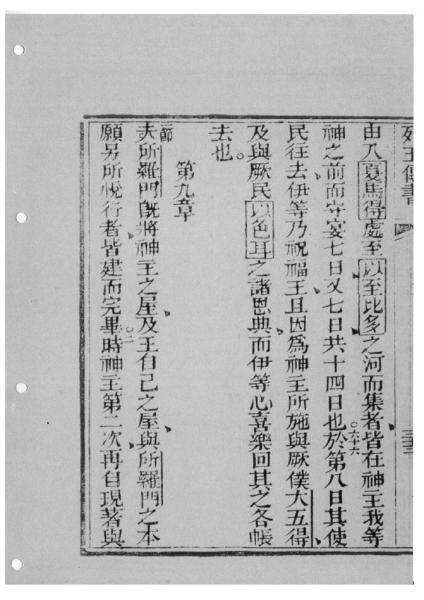 列王傳書
三三
由入夏馬得處至以至比多之河而集者皆在神主我等
神之前而守宴七日又七日共十四日也於第八日其使
六十六
民往去伊等乃祝福王且因為神主所施與厥僕大五得
及與厥民以色耳之諸恩典而伊等心喜樂回其之各帳
去也
第九章
一節
夫所羅門旣將神主之屋及王自己之屋與所羅門之本
願另所悅行者皆建而完畢時神主第二次再自現著與
二